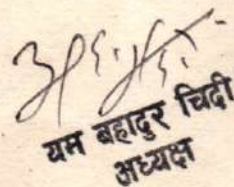 यम बहादुर चिदी
अध्यक्ष